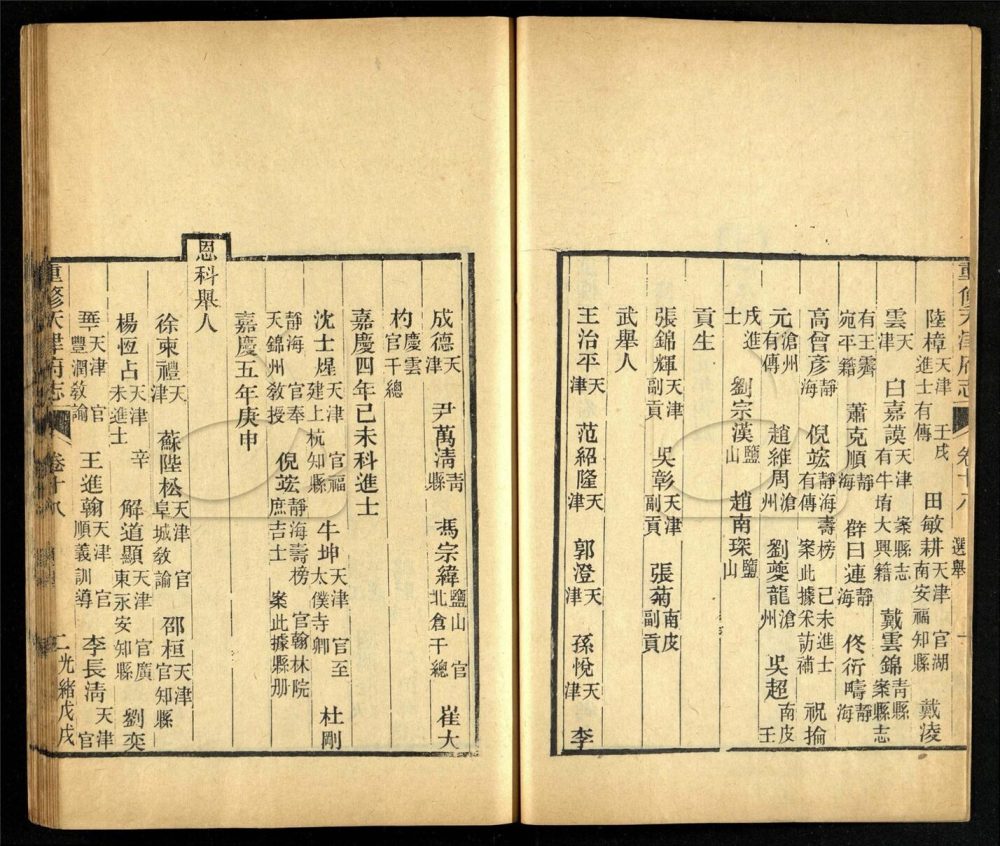 重修天津府志 卷十八 選舉
陸樟天津 壬戌進士有傳 田敏耕天津 官湖南安福知縣 戴淩
雲天津 白嘉謨天津 案縣志有牛堉大興籍 戴雲錦青縣 案縣志
有王霽宛平籍 蕭克順靜海 辟曰連靜海 佟衍疇靜海
高會彥靜海 倪竤靜海壽榜 己未進士有傳 案此據采訪補 祝掄
元滄州有傳 趙維周滄州 劉夔龍滄州 吳超南皮 壬
戌進士 劉宗漢鹽山 趙南琛鹽山
貢生
張錦輝天津副貢 吳彰天津副貢 張菊南皮副貢
武舉人
王治平天津 范紹隆天津 郭澄天津 孫悅天津 李
成德天津 尹萬淸青縣 馮宗緯鹽山 官北倉千總 崔大
杓慶雲官千總
嘉慶四年己未科進士
沈士煋天津 官福建上杭知縣 牛坤天津 官至太僕寺卿 杜剛
靜海 官奉天錦州敎授 倪竤靜海壽榜 官翰林院庶吉士 案此據縣册
嘉慶五年庚申
恩科舉人
徐束禮天津 蘇陛松天津 官阜城敎諭 邵桓天津官知縣
楊恆占天津 辛未進士 解道顯天津 官廣東永安知縣 劉奕
華天津 官豐潤敎諭 王進翰天津 官順義訓導 李長淸天津 官
重修天津府志 卷十八 二 光緒戊戌